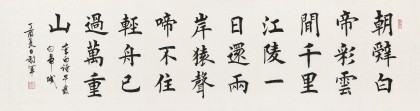 朝辭白
帝彩雲
間千里
江陵一
日還兩
岸猿聲
啼不住
輕舟已
過萬重
山
李白詩早發
白帝城